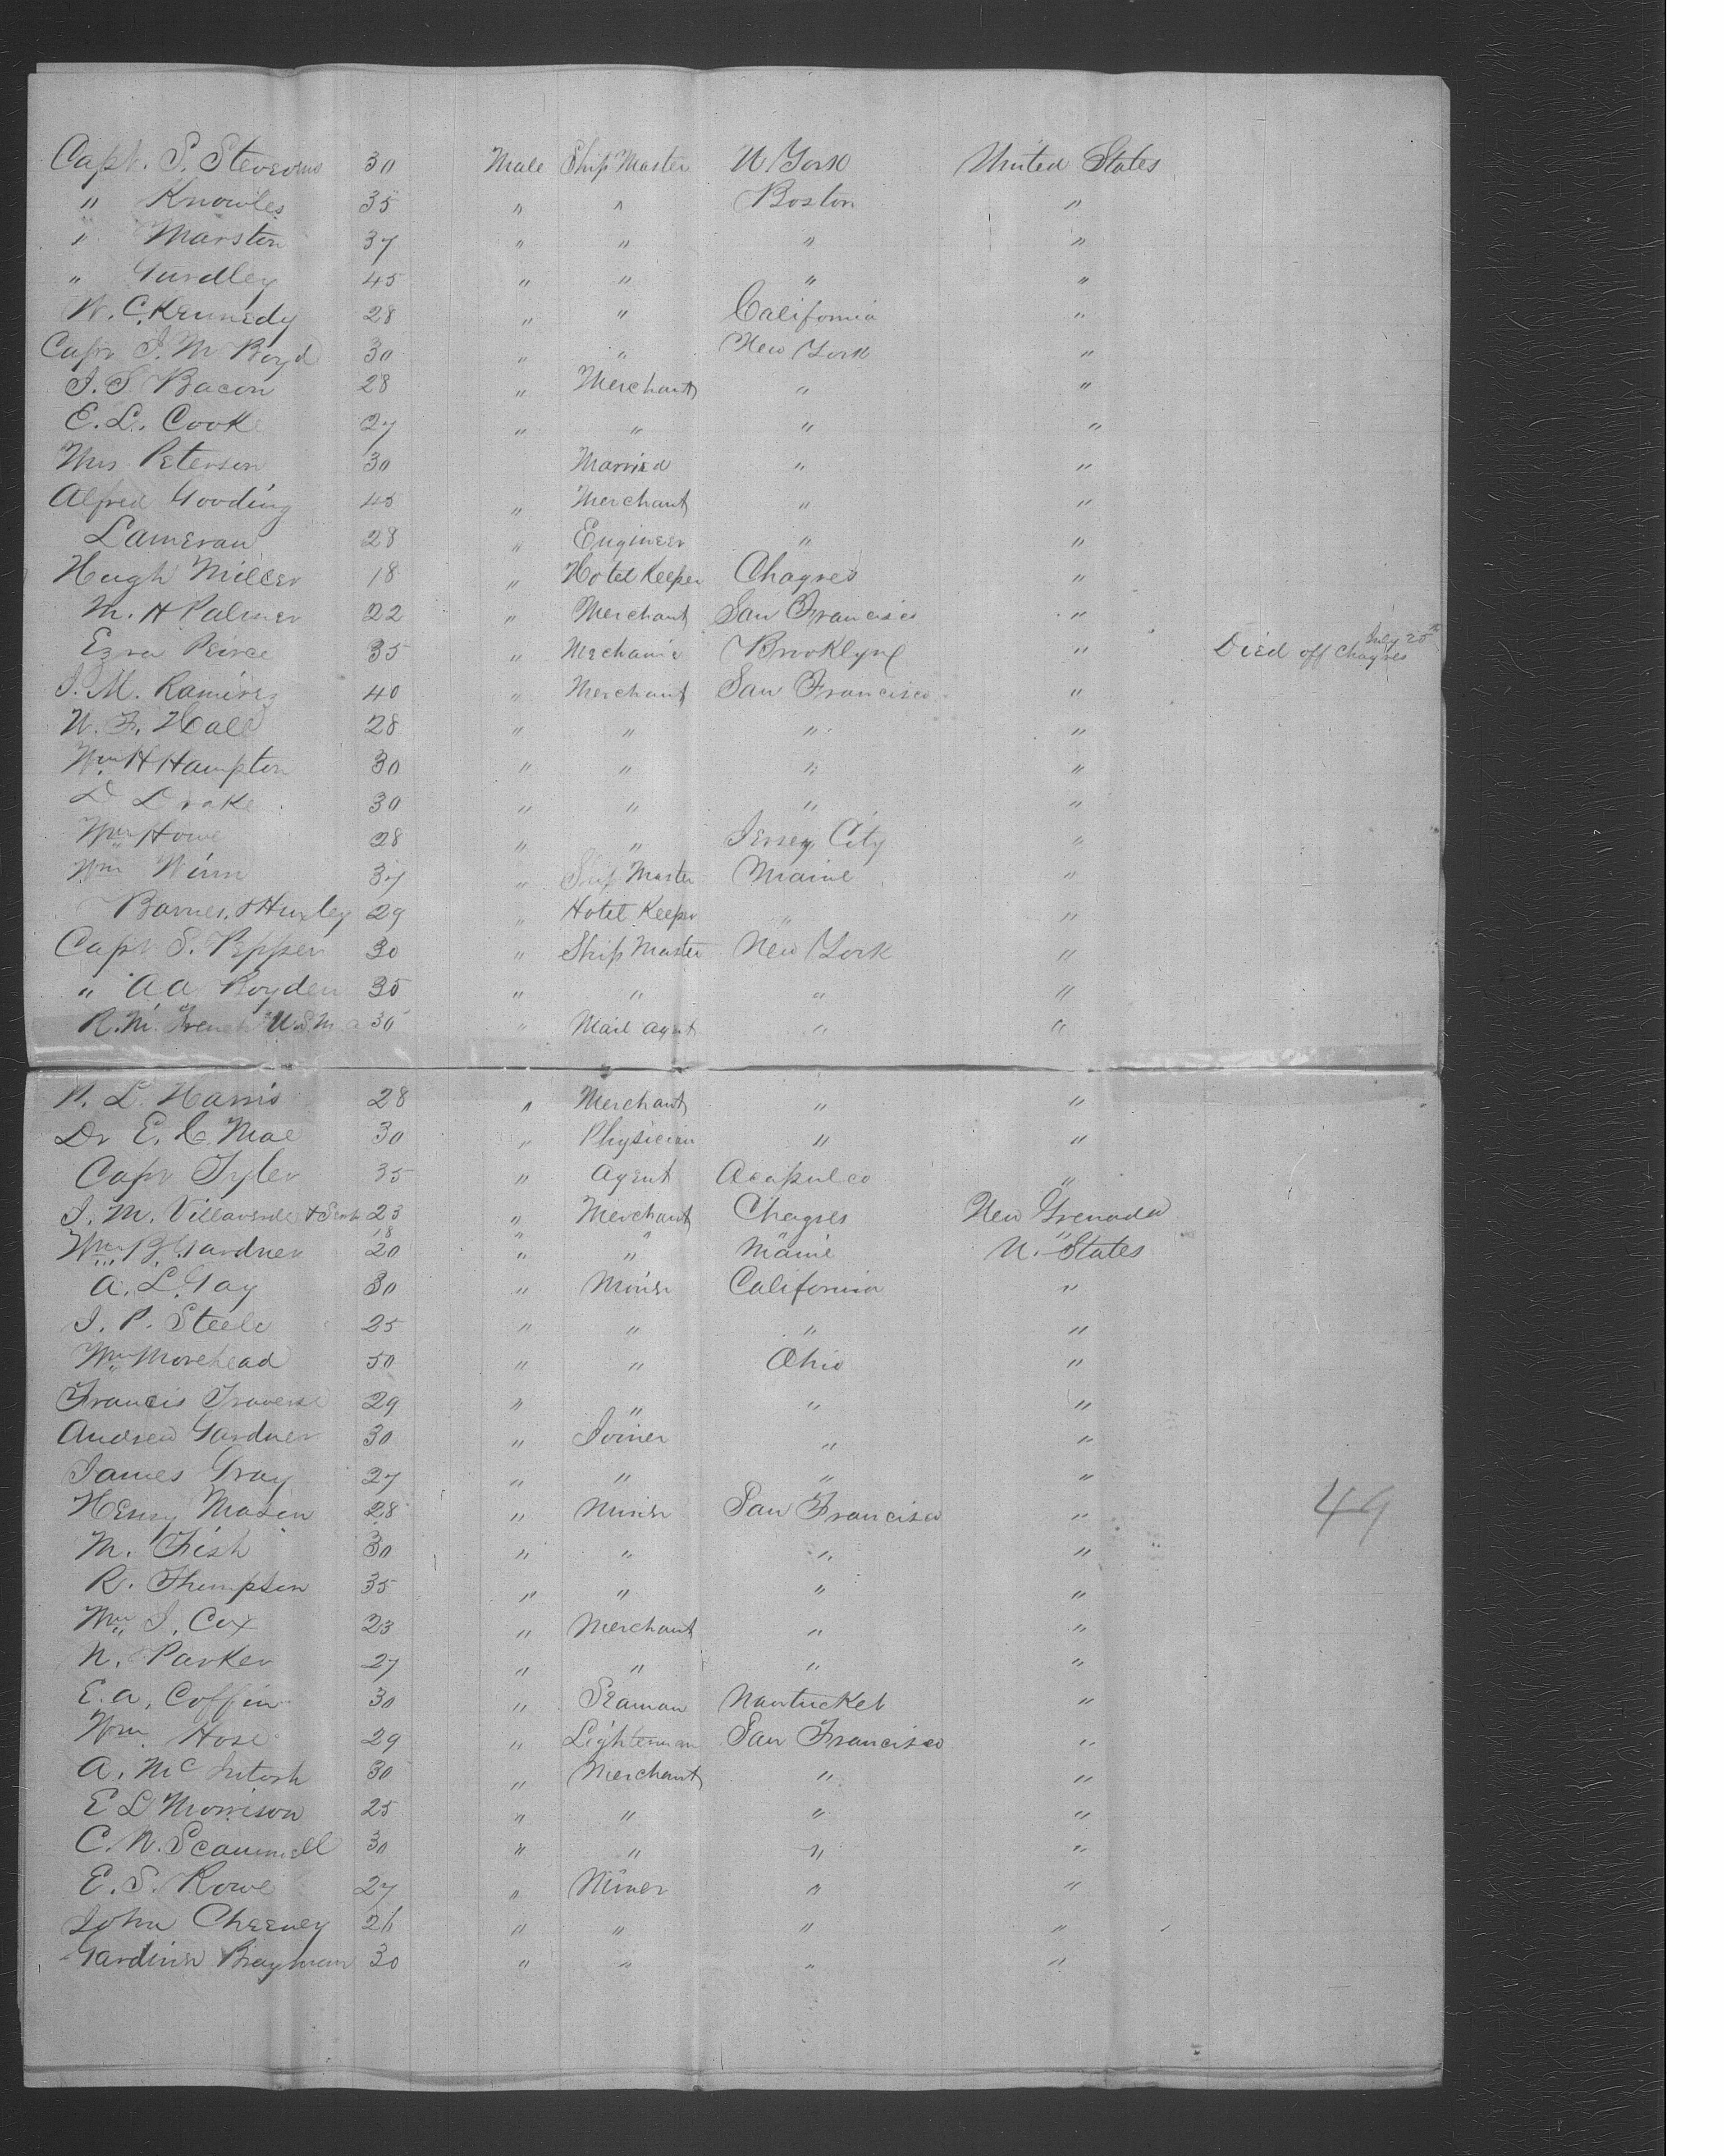 Capt. S. Stevens 30 Male Ship Master N. York United States
" Knowles 35 " " Boston "
" Marston 37 " " " "
" Gurdley 45 " " " "
W. C. Kennedy 28 " " California "
Capt J. M Boyd 30 " " New York "
J. S. Bacon 28 " Merchant " "
E. L. Cooke 27 " " " "
Mrs Peterson 30 Married " "
Alfred Gooding 45 " Merchant " "
Lameran 28 " Engineer " "
Hugh Miller 18 " Hotel Keeper Chagres "
M. H Palmer 22 " Merchant San Francisco "
Ezra Peirce 35 " Mechanic Brooklyn " Died off Chagres July 25th
J. M. Ramirez 40 " Merchant San Francisco "
N. F. Hall 28 " " " "
Wm H Hampton 30 " " " "
D Drake 30 " " " "
Wm Howe 28 " " Jersey City "
Wm Winn 37 " Ship Master Maine "
Barnes & Huxley 29 " Hotel Keeper " "
Capt S. Pepper 30 " Ship Master New York "
" A A Boyden 35 " " " "
R. M. French U.S.M a 30 " Mail agent " "
P. L. Harris 28 " Merchant " "
Dr E. C. Mae 30 " Physician " "
Capt Tyler 35 " Agent Acapulco "
J. M. Villaverde & Servt 23 " Merchant Chagres New Grenada
18 " " " "
Wm B Gardner 20 " " Maine U. States
A. L. Gay 30 " Miner California "
J. P. Steele 25 " " " "
Wm Morehead 50 " " Ohio "
Francis Traverse 29 " " " "
Andrew Gardner 30 " Joiner " "
James Gray 27 " " " "
Henry Mason 28 " Miner San Francisco "
M. Fish 30 " " " "
R. Thompson 35 " " " "
Wm J. Cox 23 " Merchant " "
N. Parker 27 " " " "
E. A. Coffin 30 " Seaman Nantucket "
Wm. Hose 29 " Lighterman San Francisco "
A. McIntosh 30 " Merchant " "
E D Morrison 25 " " " "
C. N. Scammell 30 " " " "
E. S. Rowe 27 " Miner " "
John Cheeney 26 " " " "
Gardiner Brayman 30 " " " "
49